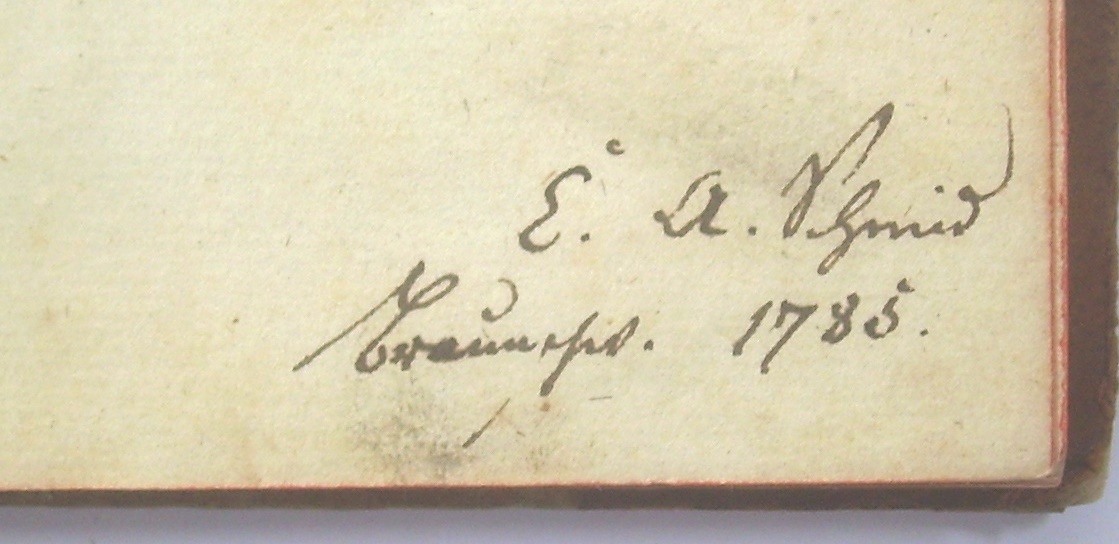 E. A. Schmid
Braunschw. 1785.